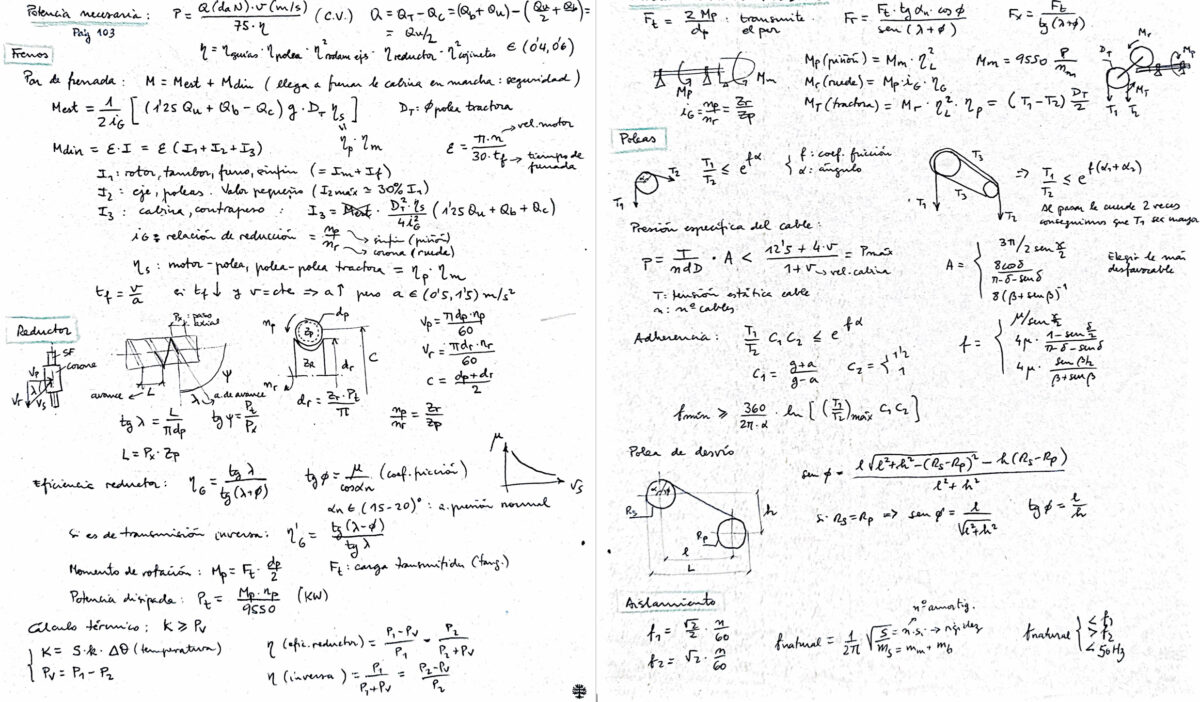 Potencia necesaria: P = Q(daN)·v(m/s) / 75·η (C.V.) Q = Q_T - Q_C = (Q_b + Q_u) - (Q_u/2 + Q_b) =
Pág 103 = Q_u/2
η = η_guías · η_polea · η²_rodam ejs · η_reductor · η²_cojinetes ∈ (0'4, 0'6)
Frenos
Par de frenada: M = Mest + Mdin (llega a frenar la cabina en marcha: seguridad)
Mest = 1/(2i_G) [(1'25 Q_u + Q_b - Q_c) g · D_T η_s] D_T: φ polea tractora
η_p · η_m
Mdin = ε·I = ε (I_1 + I_2 + I_3) ε = π·n / 30·t_f → vel. motor → tiempo de frenada
I_1: rotor, tambor, freno, sinfín (= I_m + I_f)
I_2: eje, poleas. Valor pequeño (I_2máx ≃ 30% I_1)
I_3: cabina, contrapeso: I_3 = D_T²·η_s / 4i_G² (1'25 Q_u + Q_b + Q_c)
i_G: relación de reducción = n_p/n_r → sinfín (piñón) → corona (rueda)
η_s: motor-polea, polea-polea tractora = η_p · η_m
t_f = v/a si t_f↓ y v=cte ⇒ a↑ pero a ∈ (0'5, 1'5) m/s²
Reductor
P_x paso axial n_p d_p Z_p v_p = πd_p·n_p / 60
SF corona v_p λ v_r v_s avance L λ a. de avance ψ n_r Z_R d_r C v_r = πd_r·n_r / 60
d_r = Z_r·P_t / π C = (d_p + d_r) / 2
tg λ = L / πd_p tg ψ = P_t / P_x n_p/n_r = Z_r/Z_p
L = P_x · Z_p
μ v_s
Eficiencia reductor: η_G = tg λ / tg(λ+φ) tg φ = μ / cosα_n (coef. fricción)
α_n ∈ (15-20)°: a. presión normal
Si es de transmisión inversa: η'_G = tg(λ-φ) / tg λ
Momento de rotación: M_p = F_t · d_p/2 F_t: carga transmitida (tang.)
Potencia disipada: P_t = M_p·n_p / 9550 (KW)
Cálculo térmico: K ≥ P_v
K = S·k·Δθ (temperatura) η (efic. reductor) = (P_1 - P_v)/P_1 = P_2/(P_2 + P_v)
P_v = P_1 - P_2 η (inversa) = P_1/(P_1 + P_v) = (P_2 - P_v)/P_2
F_t = 2 M_p / d_p : transmite el par F_r = F_t·tg α_n·cos φ / sen(λ+φ) F_x = F_t / tg(λ+φ)
M_p M_m M_p (piñón) = M_m · η_L² M_m = 9550 P/n_m
M_r (rueda) = M_p · i_G · η_G
i_G = n_p/n_r = Z_r/Z_p M_T (tractora) = M_r · η_L² · η_p = (T_1 - T_2) D_T/2
D_T M_r M_p M_T T_1 T_2
Poleas
α T_2 T_1 T_1/T_2 ≤ e^(fα) f: coef. fricción α: ángulo
T_3 T_3 T_1 T_2 ⇒ T_1/T_2 ≤ e^(f(α_1+α_2))
se pasa la cuerda 2 veces
conseguimos que T_1 sea mayor
Presión específica del cable:
P = T/(ndD) · A < (12'5 + 4·v)/(1 + v) = Pmáx → vel. cabina
T: tensión estática cable
n: nº cables.
A = { 3π/2 sen γ/2
8cosδ / (π-δ-senδ)
8(β+senβ)⁻¹
Elegir la más
desfavorable
Adherencia: T_1/T_2 C_1 C_2 ≤ e^(fα)
C_1 = (g+a)/(g-a) C_2 = { 1'2 1
f = { μ/sen γ/2
4μ · (1 - sen δ/2)/(π-δ-senδ)
4μ · sen β/2 / (β+senβ)
fmín ≥ 360/(2π·α) · ln [(T_1/T_2)máx C_1 C_2]
Polea de desvío
α φ R_s R_p h l L
sen φ = (l√(l²+h²-(R_s-R_p)²) - h(R_s-R_p)) / (l²+h²)
si R_s = R_p ⇒ sen φ = l/√(l²+h²) tg φ = l/h
Aislamiento
f_1 = √2/2 · n/60
f_2 = √2 · n/60
nº amortig.
fnatural = 1/2π √(S/m_s) = n·s_i → rigidez = m_m + m_b
fnatural { ≤ f_1 > f_2 < 50Hz